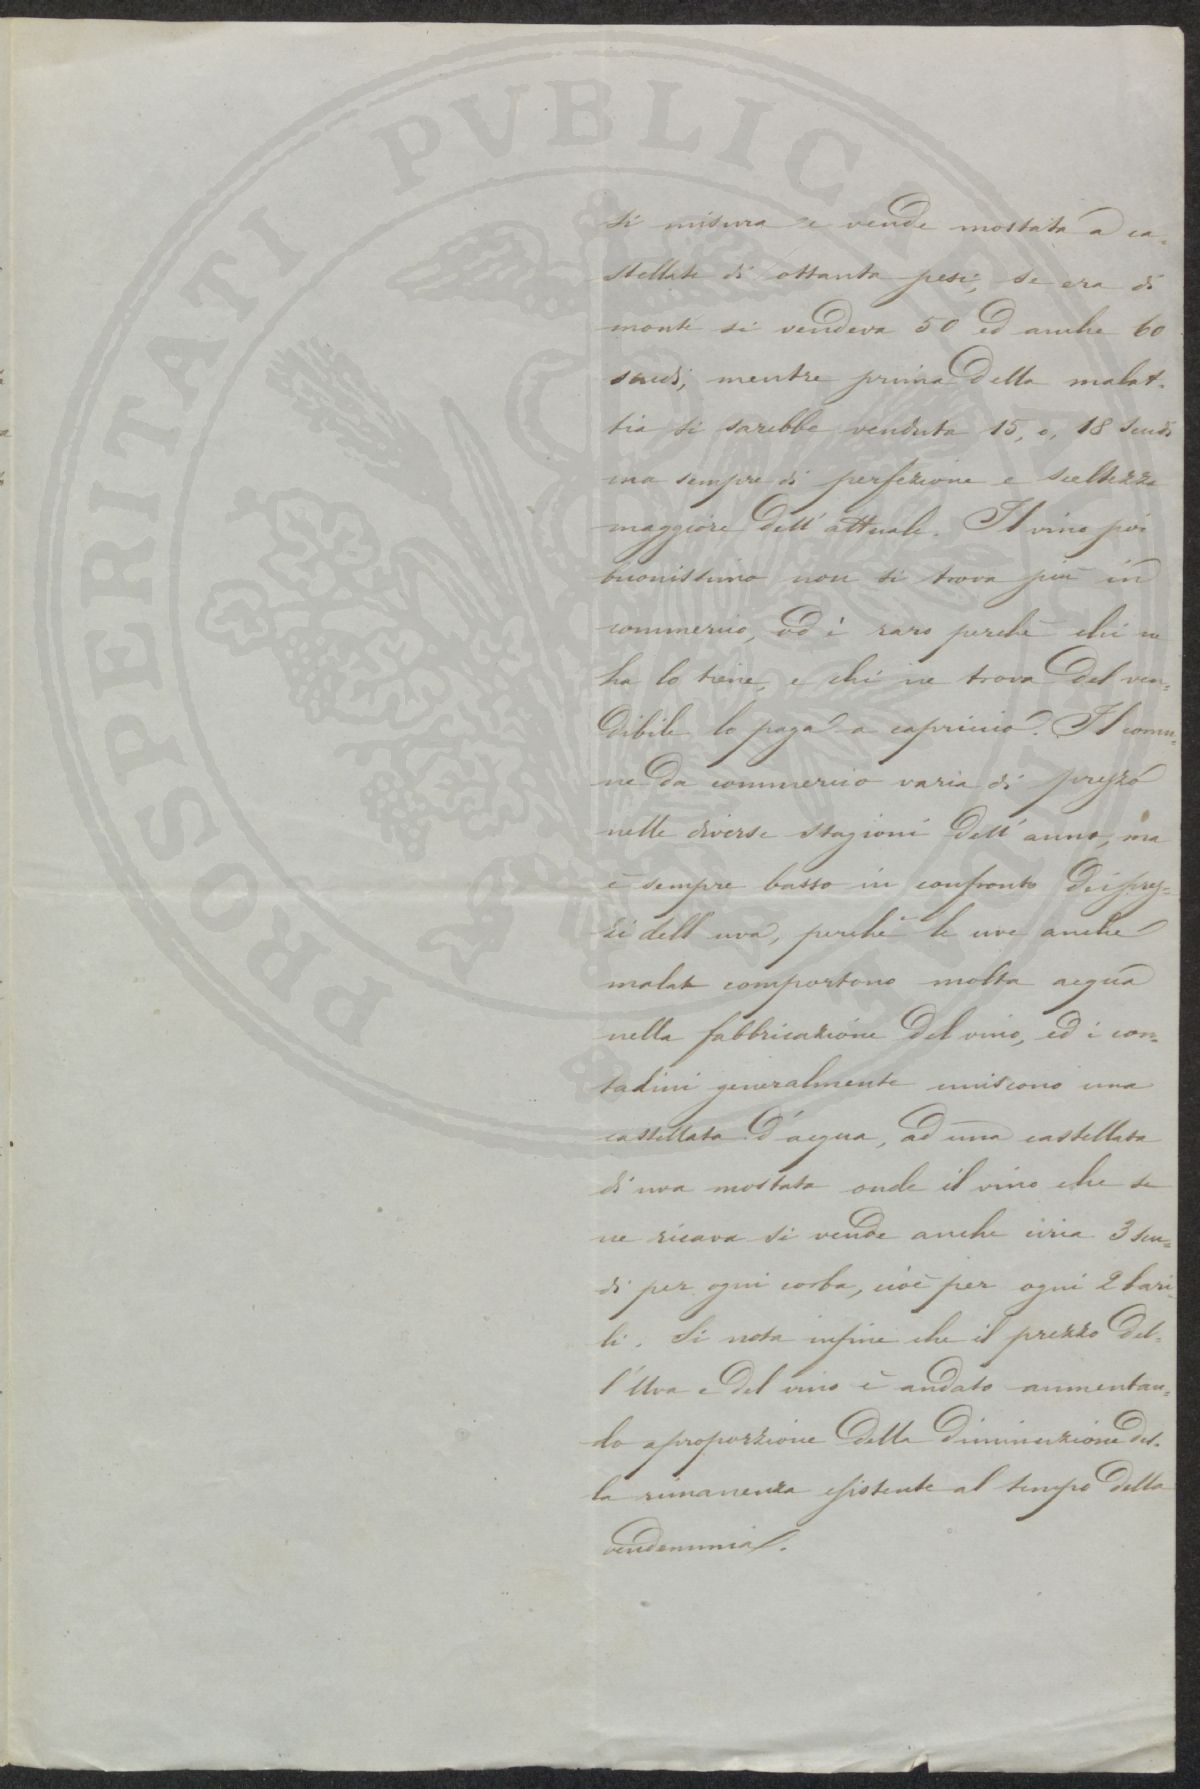 PROSPERITATI PVBLICAE
si misura e vende mostata a ca-
stellate di ottanta pesi, se era di
monte si vendeva 50 ed anche 60
scudi, mentre prima della malat-
tia si sarebbe venduta 15, o, 18 scudi
ma sempre di perfezione e sceltezza
maggiore dell' attuale. Il vino poi
buonissimo non si trova più in
commercio, ed è raro perchè chi ne
ha lo tiene, e chi ne trova del ven-
dibile lo paga a capriccio. Il comu-
ne da commercio varia di prezzo
nelle diverse stagioni dell' anno, ma
è sempre basso in confronto dei prez-
zi dell' uva, perchè le uve anche
malate comportono molta acqua
nella fabbricazione del vino, ed i con-
tadini generalmente uniscono una
castellata d'acqua, ad una castellata
di uva mostata onde il vino che se
ne ricava si vende anche circa 3 scu-
di per ogni corba, cioè per ogni 2 bari-
li. Si nota infine che il prezzo del-
l'Uva e del vino è andato aumentan-
do a proporzione della diminuzione del-
la rimanenza esistente al tempo della
vendemmia.